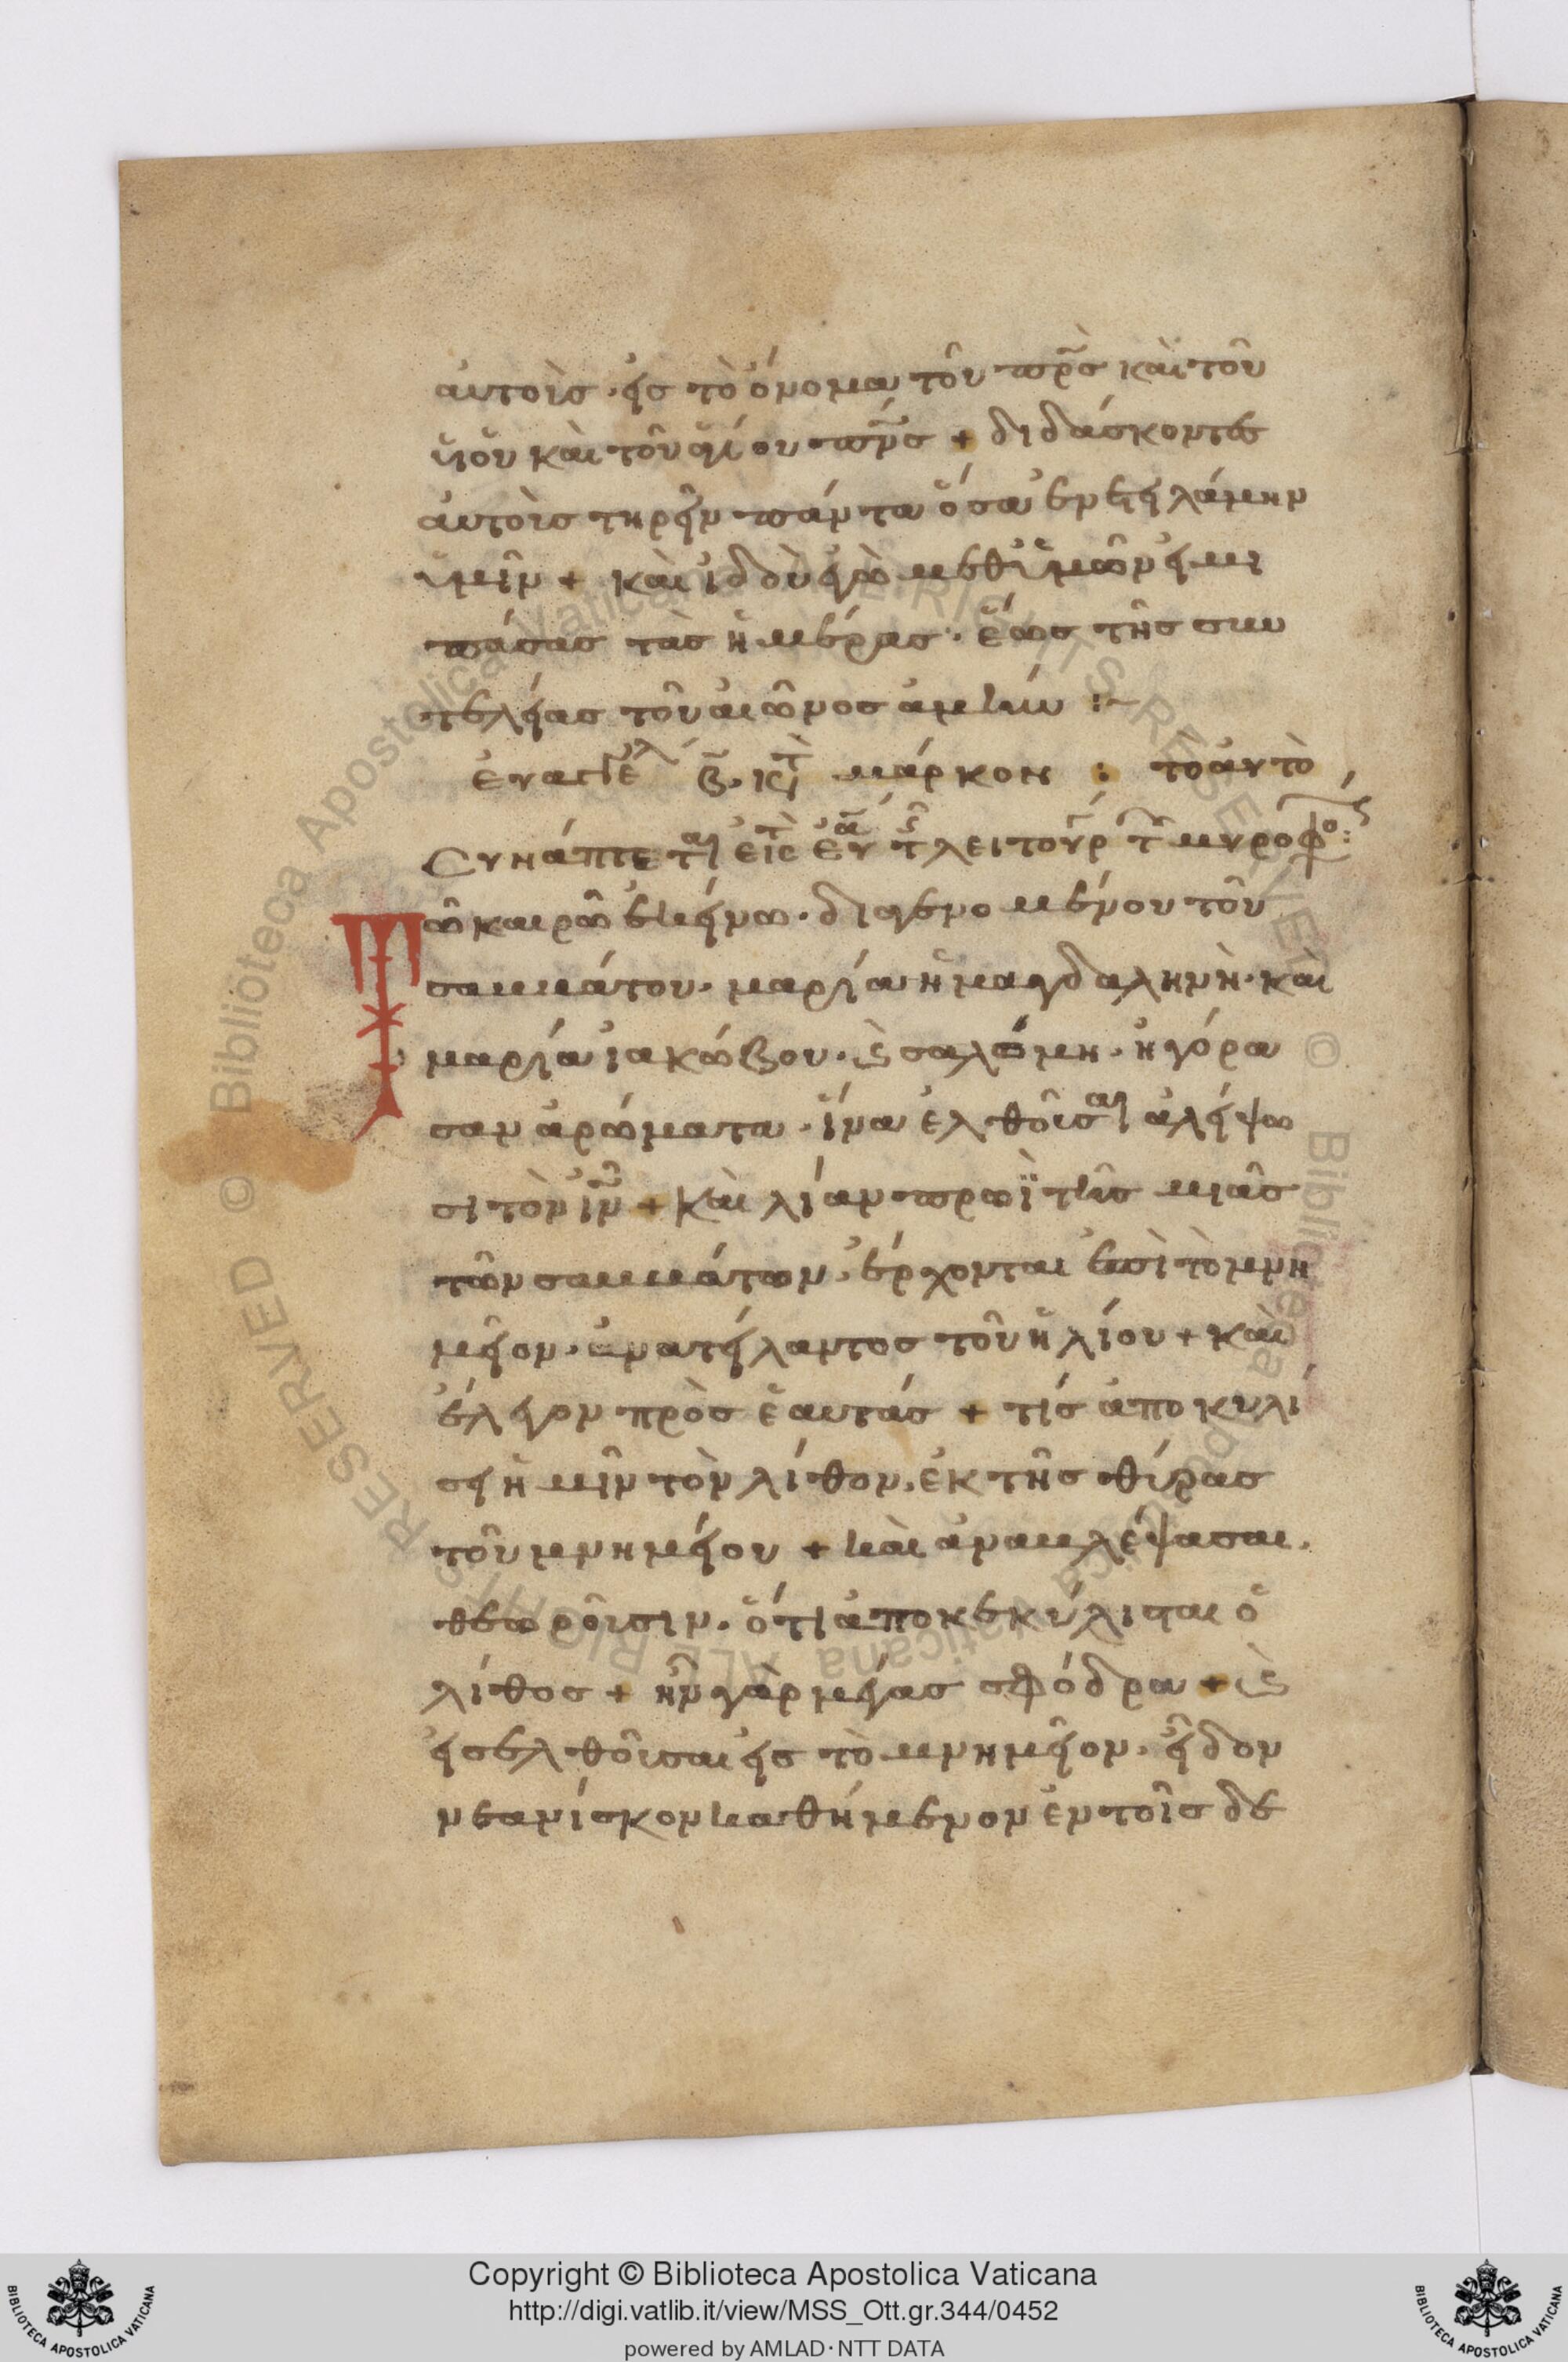 αὐτοὺς· εἰς τὸ ὄνομα τοῦ πρ̅ς καὶ τοῦ
υἱοῦ καὶ τοῦ ἁγίου πν̅ς + διδάσκοντες
αὐτοὺς τηρεῖν πάντα ὅσα ἐνετειλάμην
ὑμῖν + καὶ ἰδοὺ ἐγὼ μεθ ὑμῶν εἰμι
πάσας τὰς ἡμέρας· ἕως τῆς συν
τελείας τοῦ αἰῶνος ἀμήν :~
ἐυαγγελ β̅· κτ μάρκον : τὸ αὐτὸ
Συνάπτεται εἰς λειτουρ τ μυροφο:
Τῶ καιρῶ ἐκείνω· διαγενομένου τοῦ
σαββάτου· μαρία ἡ μαγδαληνὴ· καὶ
μαρία ἰακώβου· ϗ σαλώμη· ἠγόρα
σαν ἀρώματα· ἵνα ἐλθοῦσαι ἀλείψω
σι τὸν ιν̅ + Καὶ λίαν πρωῒ τῆς μιᾶς
τῶν σαββάτων· ἔρχονται ἐπὶ τὸ μνη
μεῖον· ἀνατείλαντος τοῦ ἡλίου + καὶ
ἔλεγον πρὸς ἑαυτάς + τίς ἀποκυλί
σει ἡμῖν τὸν λίθον· ἐκ τῆς θύρας
τοῦ μνημείου + καὶ ἀναβλέψασαι·
θεωροῦσιν· ὅτι ἀποκεκύλισται ὁ
λίθος + ἦν γὰρ μέγας σφόδρα + ϗ
εἰσελθοῦσαι εἰς τὸ μνημεῖον· εἶδον
νεανίσκον καθήμενον ἐν τοῖς δε
Copyright © Biblioteca Apostolica Vaticana
http://digi.vatlib.it/view/MSS_Ott.gr.344/0452
powered by AMLAD·NTT DATA
BIBLIOTECA APOSTOLICA VATICANA
BIBLIOTECA APOSTOLICA VATICANA